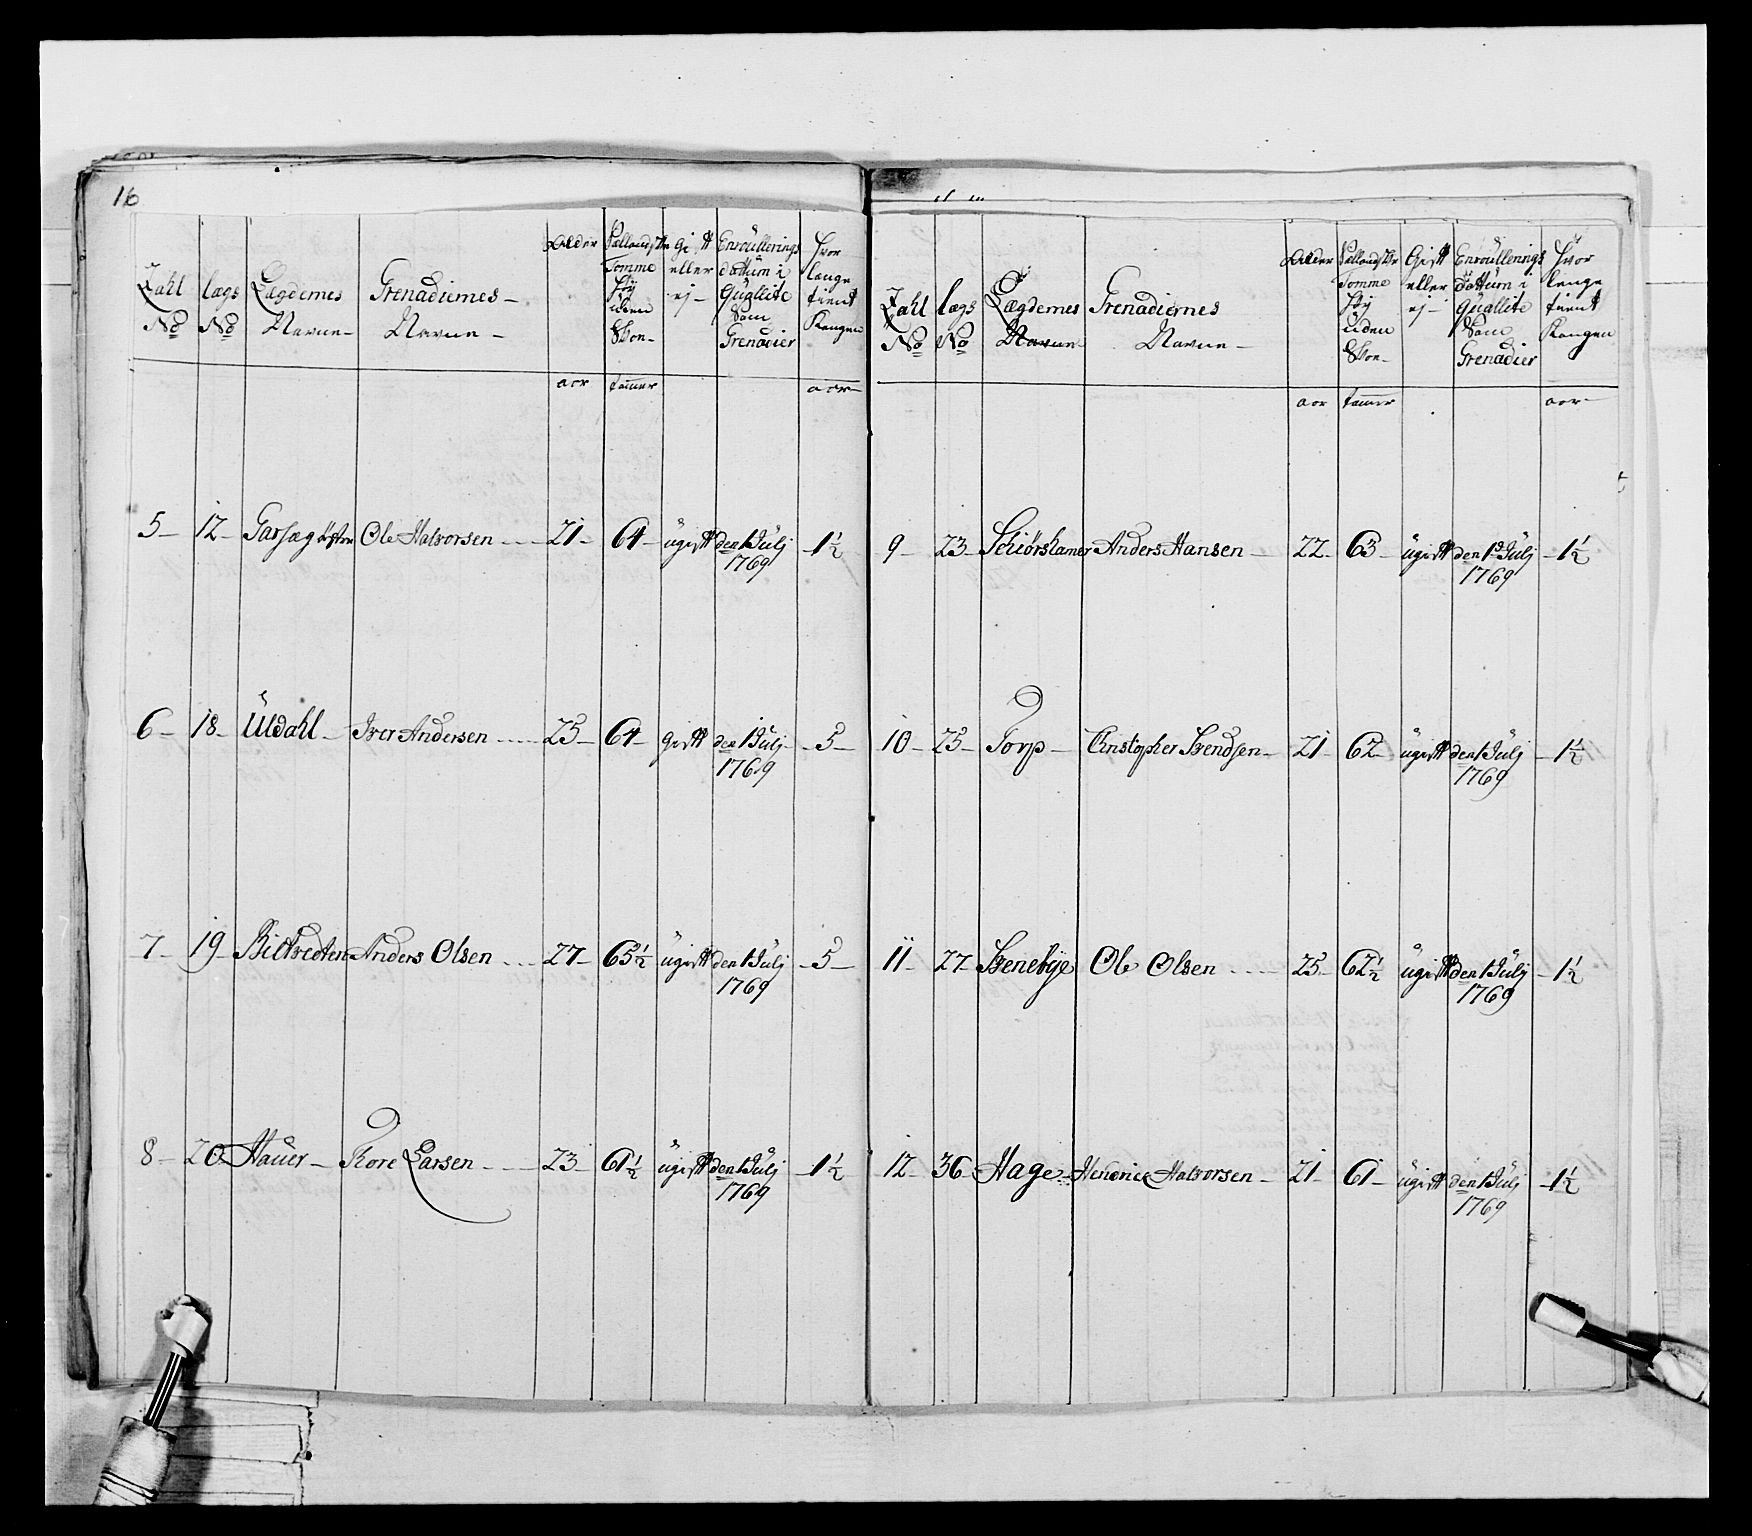 16
Zahl No
lægs No
Lægdernes Navne
Grenadiernes Navne
Alder
Tomme Høy uden Skoe
Gift eller ej
Enroullerings dattum i Quallite Som Grenadier
Hvor længe tient Kongen
aar tommer aar
5 12 Ole Halvorsen 21 64 ugift den 1 Julj 1769 1½
6 18 Uldahl Iver Andersen 25 64 gift den 1 Julj 1769 5
7 19 Anders Olsen 27 65½ ugift den 1 Julj 1769 5
8 20 Hauer Tore Larsen 23 61½ ugift den 1 Julj 1769 1½
Zahl No
lægs No
Lægdernes Navne
Grenadiernes Navne
Alder
Tomme Høy uden Skoe
Gift eller ej
Enroullerings dattum i Quallite Som Grenadier
Hvor længe tient Kongen
aar tommer aar
9 23 Anders Hansen 22 63 ugift den 1 Julj 1769 1½
10 25 Torp Christopher Svendsen 21 62 ugift den 1 Julj 1769 1½
11 27 Svenebye Ole Olsen 25 62½ ugift den 1 Julj 1769 1½
12 36 Hage Hendrick Halvorsen 21 61 ugift den 1 Julj 1769 1½